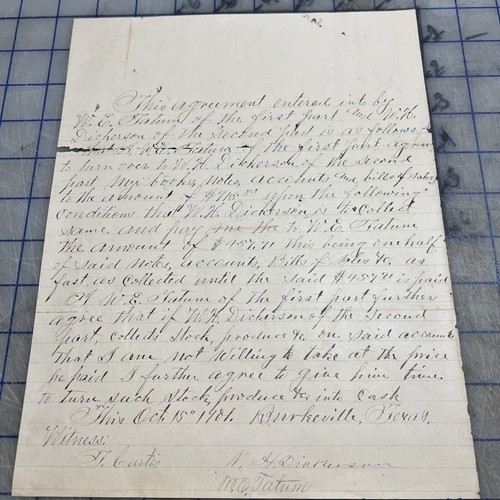 This agreement entered into by
W. E. Tatum of the first part and W. H.
Dickerson of the Second part is as follows,
W. E. Tatum of the first part agree
to turn over to W. H. Dickerson of the Second
part, my books, notes, accounts and bills of sales
to the amount of upon the following
conditions that W. H. Dickerson is to collect
same and pay to W. E. Tatum
the amount of $457.71 this being one half
of said notes, accounts, Bills of sales &c, as
fast as collected until the said $457.71 is paid
I W. E. Tatum of the first part further
agree that if W. H. Dickerson of the Second
part, collects Stock, produce &c on said accounts
that I am not Willing to take at the price
he paid I further agree to give him time
to turn such Stock, produce &c into cash
This Oct. 15" 1901. Burkeville, Texas.
Witness:
T. Curtis W. H. Dickerson
W. E. Tatum